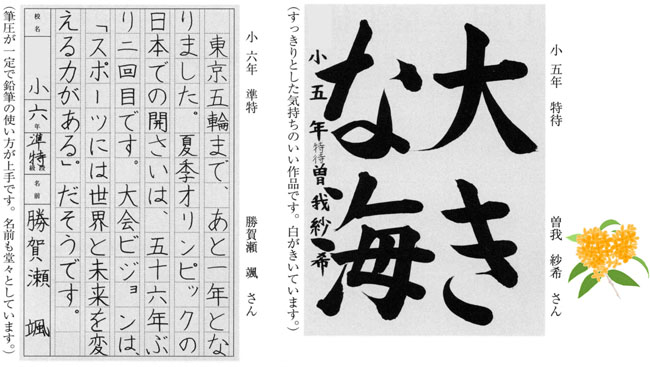 小 五年 特待
曽我 紗希 さん
大き
な海
小五年
特待
曽我紗希
（すっきりとした気持ちのいい作品です。白がきいています。）
小 六年 準特
勝賀瀬 颯 さん
東京五輪まで、あと一年とな
りました。夏季オリンピックの
日本での開さいは、五十六年ぶ
り二回目です。大会ビジョンは、
「スポーツには世界と未来を変
える力がある」だそうです。
校名
小六年
準特
段級
名前
勝賀瀬 颯
（筆圧が一定で鉛筆の使い方が上手です。名前も堂々としています。）